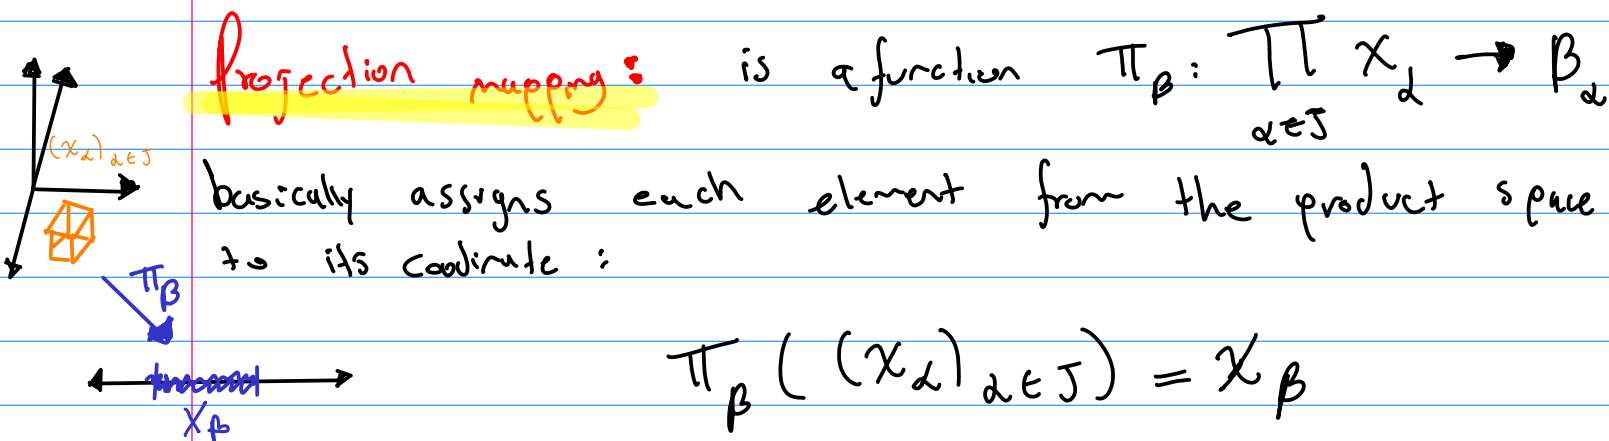 Projection mapping: is a function π_β: ∏_{α∈J} X_α → β_α
(x_α)_{α∈J}
basically assigns each element from the product space
to its coodinate:
π_β
π_β((x_α)_{α∈J}) = x_β
X_β